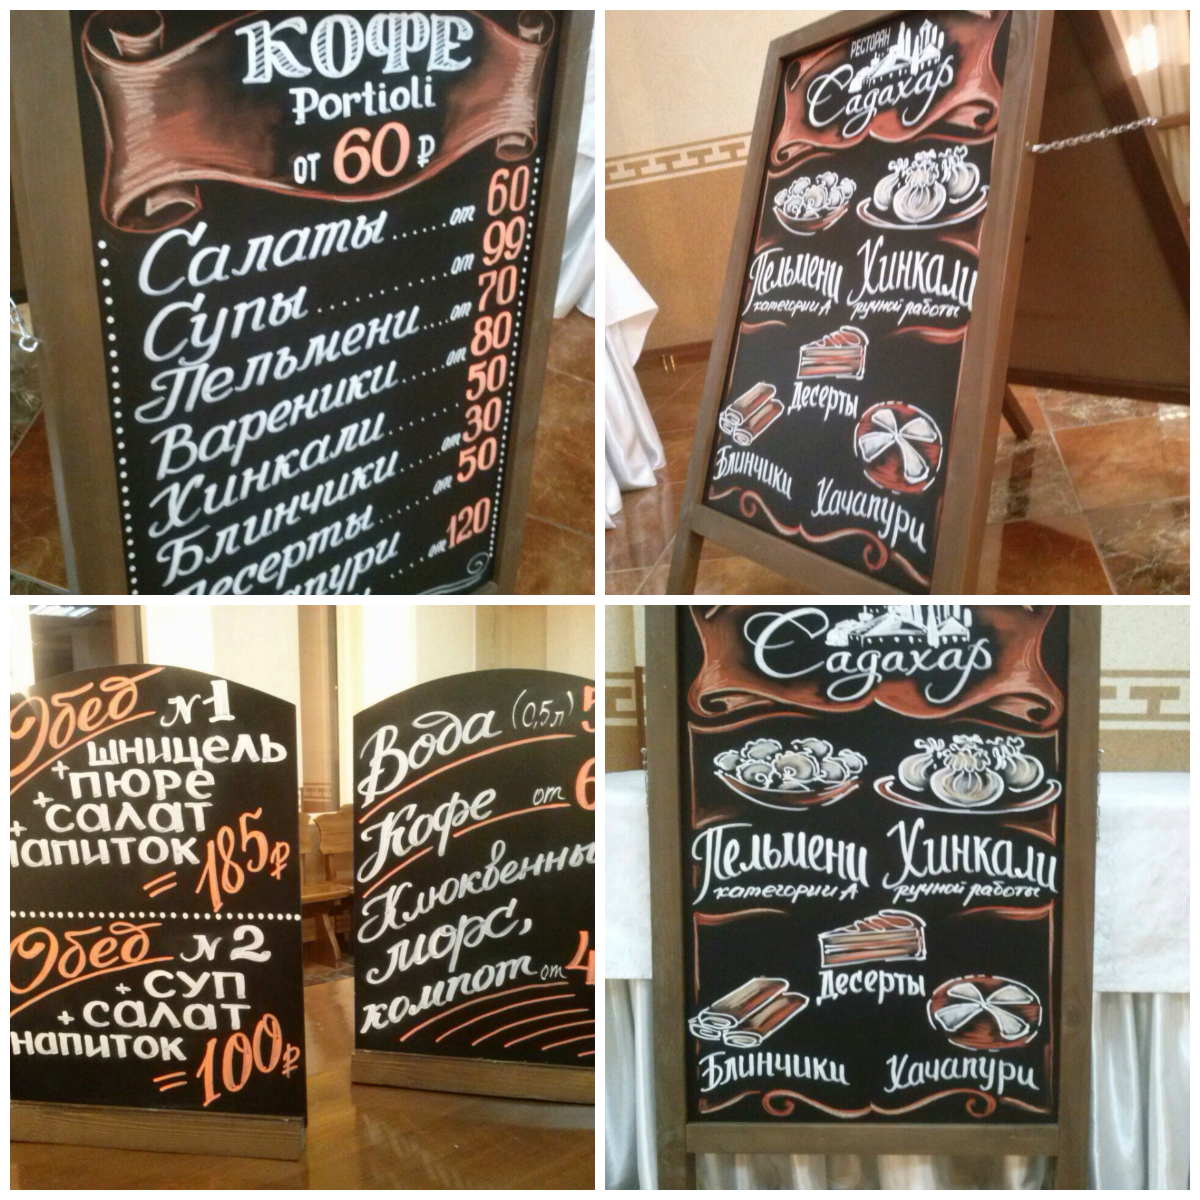 КОФЕ
Portioli
от 60 ₽
Салаты......от 60
Супы..............от 99
Пельмени...от 70
Вареники.....от 80
Хинкали........от 50
Блинчики.....от 30
Десерты......от 50
......от 120
РЕСТОРАН
Садахар
Пельмени Хинкали
категории А ручной работы
Десерты
Блинчики Хачапури
Обед №1
шницель
+ пюре
+ салат
+ напиток
= 185₽
Обед №2
суп
+ салат
+ напиток
= 100₽
Вода (0,5л) 5
Кофе от 6
Клюквенны
морс,
компот от 4
Садахар
Пельмени Хинкали
категории А ручной работы
Десерты
Блинчики Хачапури